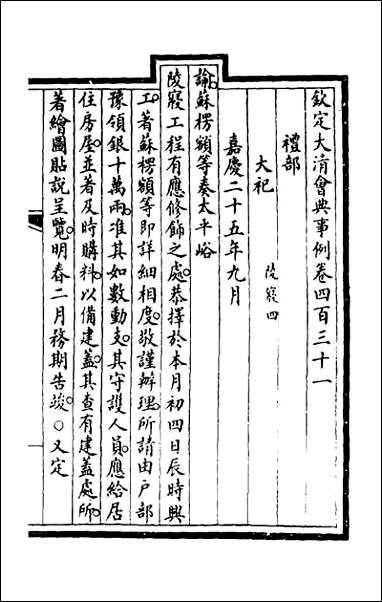 欽定大清會典事例卷四百三十一
禮部
大祀 陵寢四
嘉慶二十五年九月
諭蘇楞額等奏太平峪
陵寢工程有應修飾之處恭擇於本月初四日辰時興
工著蘇楞額等即詳細相度敬謹辦理所請由戶部
豫領銀十萬兩准其如數動支其守護人員應給居
住房屋並著及時購料以備建蓋其查有建蓋處所
著繪圖貼說呈覽明春二月務期告竣○又定